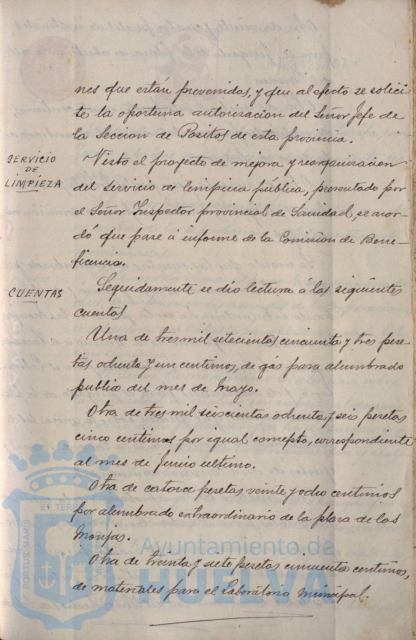 nes que están prevenidas, y que al efecto se solici-
te la oportuna autorización del Señor Jefe de
la Seccion de Positos de esta provincia.
SERVICIO
DE
LIMPIEZA
Visto el proyecto de mejora y reorganizacion
del servicio de limpieza pública, presentado por
el Señor Inspector provincial de Sanidad, se acor-
dó que pase á informe de la Comision de Bene-
ficencia.
CUENTAS
Seguidamente se dió lectura á las siguientes
cuentas
Una de tres mil setecientas cincuenta y tres pese-
tas ochenta y un centimos, de gás para alumbrado
publico del mes de Mayo.
Otra de tres mil seiscientas ochenta y seis pesetas
cinco centimos por igual concepto, correspondiente
al mes de Junio ultimo.
Otra de catorce pesetas veinte y ocho centimos
por alumbrado extraordinario de la plaza de las
Monjas.
Otra de treinta y siete pesetas cincuenta centimos,
de materiales para el Laboratorio Municipal.
PORTUS MARIS
ET TERR
Ayuntamiento de
HUELVA